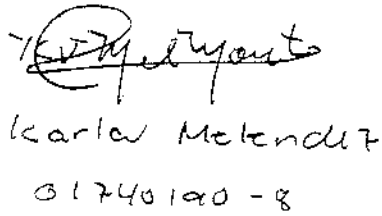 Karla Melendez
01740190-8